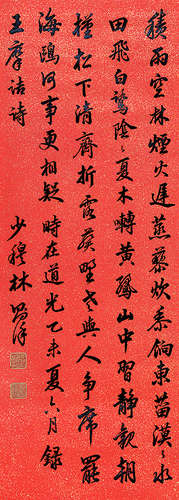 積雨空林煙火遲蒸藜炊黍餉東菑漠〻水
田飛白鷺陰〻夏木轉黃鸝山中習靜觀朝
槿松下清齋折露葵野老與人爭席罷
海鷗何事更相疑 時在道光乙未夏六月錄
王摩詰詩
少穆林則徐